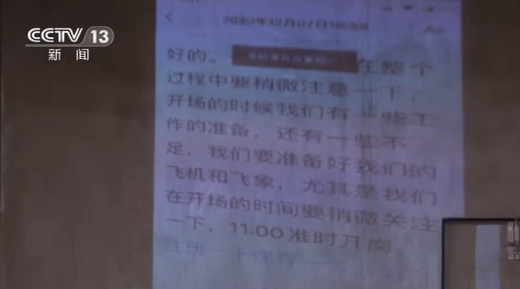 CCTV 13
新闻
好的。
在整个
过程中要稍微注意一下，
开场的时候我们有一些工
作的准备，还有一些不
足，我们要准备好我们的
飞机和飞象，尤其是我们
在开场的时间要稍微关注
一下，11:00准时开